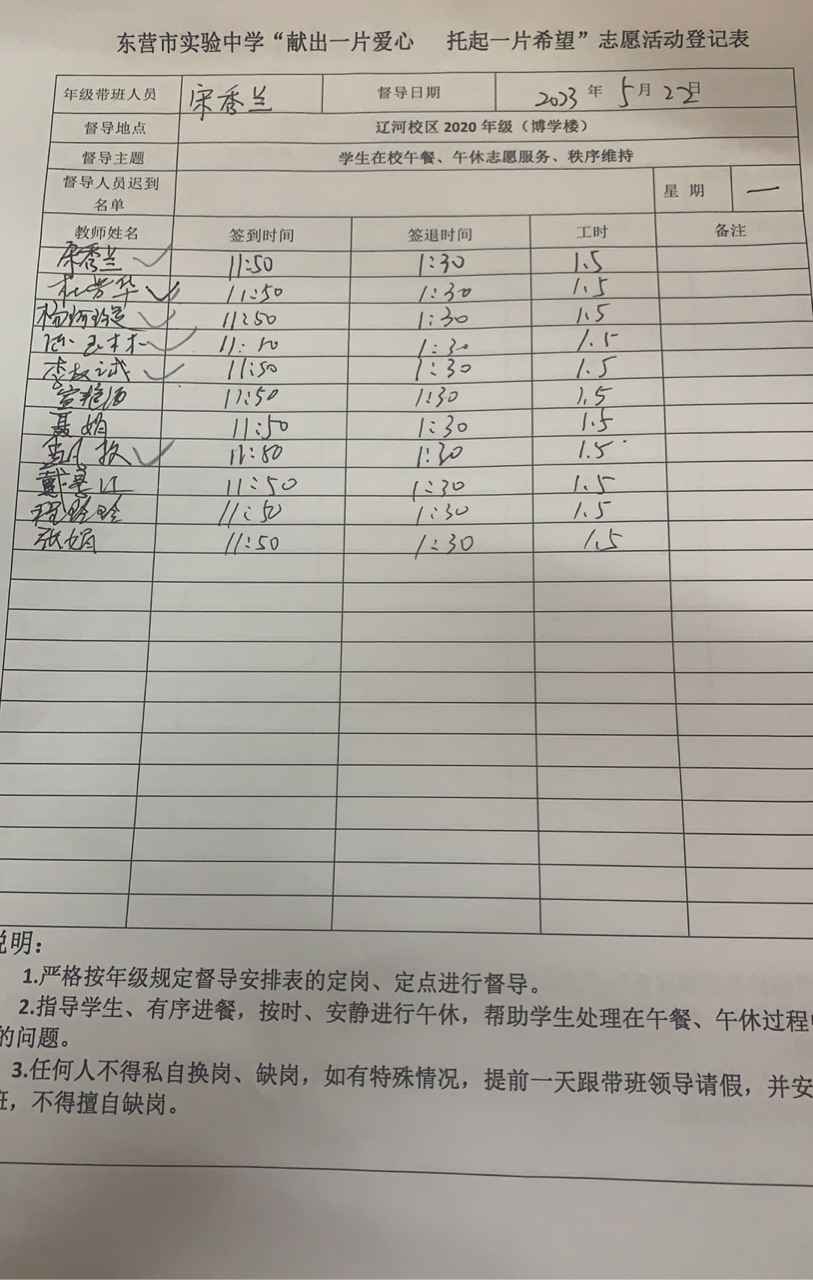 东营市实验中学“献出一片爱心 托起一片希望”志愿活动登记表
年级带班人员 宋秀兰 督导日期 2023 年 5 月 22 日
督导地点 辽河校区 2020 年级（博学楼）
督导主题 学生在校午餐、午休志愿服务、秩序维持
督导人员迟到名单 星 期 一
教师姓名 签到时间 签退时间 工时 备注
宋秀兰 11:50 1:30 1.5
杜芳华 11:50 1:30 1.5
11:50 1:30 1.5
1:30 1.5
11:50 1:30 1.5
11:50 1:30 1.5
聂娟 11:50 1:30 1.5
11:50 1:30 1.5
11:50 1:30 1.5
程玲玲 11:50 1:30 1.5
张娟 11:50 1:30 1.5
说明：
1.严格按年级规定督导安排表的定岗、定点进行督导。
2.指导学生、有序进餐，按时、安静进行午休，帮助学生处理在午餐、午休过程
的问题。
3.任何人不得私自换岗、缺岗，如有特殊情况，提前一天跟带班领导请假，并安
班，不得擅自缺岗。